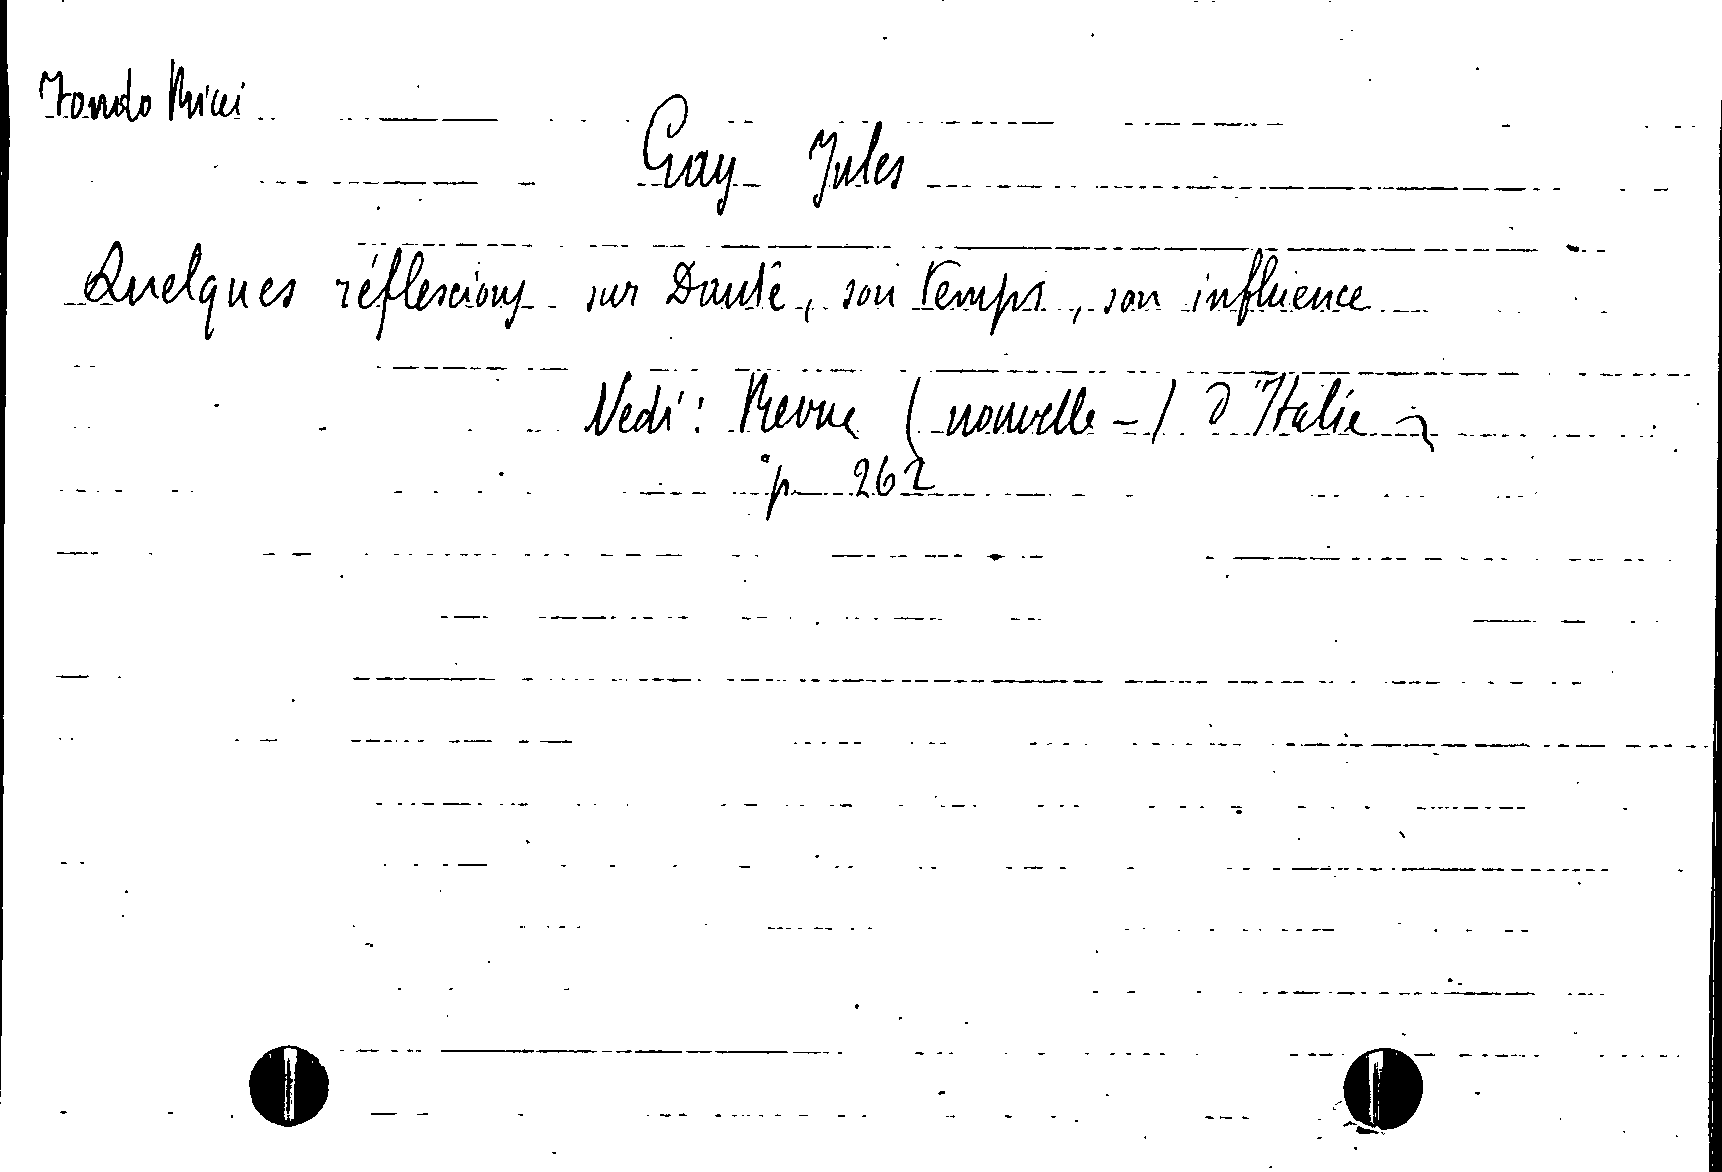 Fondo Ricci
Gay Jules
Quelques réflexions sur Dante, son temps, son influence
Vedi: Revue (nouvelle -) d'Italie
p 262